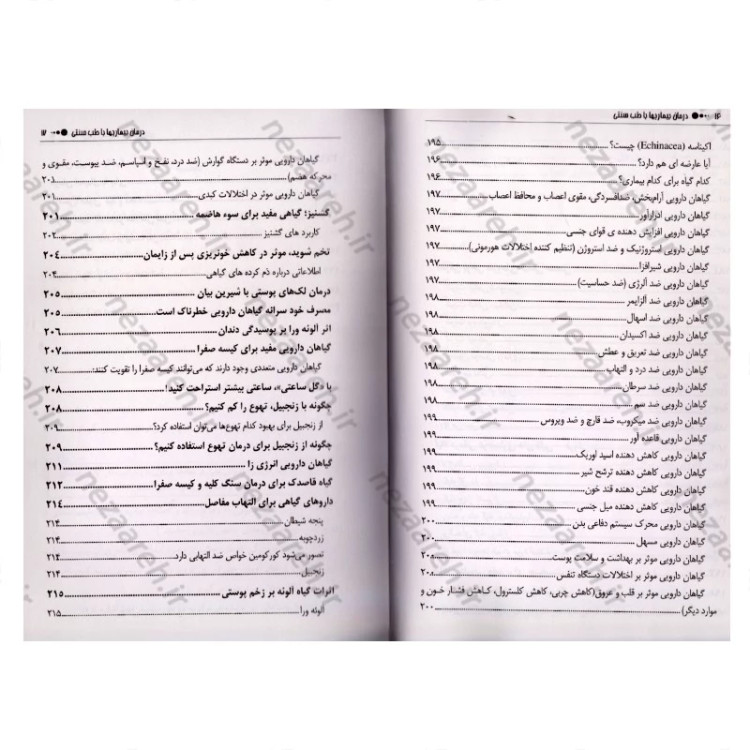 ۱۶ درمان بیماریها با طب سنتی
اکیناسه (Echinacea) چیست؟ ۱۹۵
آیا عارضه ای هم دارد؟ ۱۹۶
کدام گیاه برای کدام بیماری؟ ۱۹۶
گیاهان دارویی آرام‌بخش، ضدافسردگی، مقوی اعصاب و محافظ اعصاب ۱۹۷
گیاهان دارویی ادرارآور ۱۹۷
گیاهان دارویی افزایش دهنده ی قوای جنسی ۱۹۷
گیاهان دارویی استروژنیک و ضد استروژن (تنظیم کننده اختلالات هورمونی) ۱۹۷
گیاهان دارویی شیرافزا ۱۹۷
گیاهان دارویی ضد آلرژی (ضد حساسیت) ۱۹۷
گیاهان دارویی ضد آلزایمر ۱۹۸
گیاهان دارویی ضد اسهال ۱۹۸
گیاهان دارویی ضد اکسیدان ۱۹۸
گیاهان دارویی ضد تعریق و عطش ۱۹۸
گیاهان دارویی ضد درد و التهاب ۱۹۸
گیاهان دارویی ضد سرطان ۱۹۸
گیاهان دارویی ضد سم ۱۹۸
گیاهان دارویی ضد میکروب، ضد قارچ و ضد ویروس ۱۹۹
گیاهان دارویی قاعده آور ۱۹۹
گیاهان دارویی کاهش دهنده اسید اوریک ۱۹۹
گیاهان دارویی کاهش دهنده ترشح شیر ۱۹۹
گیاهان دارویی کاهش دهنده قند خون ۱۹۹
گیاهان دارویی کاهش دهنده میل جنسی ۱۹۹
گیاهان دارویی محرک سیستم دفاعی بدن ۲۰۰
گیاهان دارویی مسهل ۲۰۰
گیاهان دارویی موثر بر بهداشت و سلامت پوست ۲۰۰
گیاهان دارویی موثر بر اختلالات دستگاه تنفس ۲۰۰
گیاهان دارویی موثر بر قلب و عروق(کاهش چربی، کاهش کلسترول، کاهش فشار خون و
موارد دیگر) ۲۰۰
درمان بیماریها با طب سنتی ۱۷
گیاهان دارویی موثر بر دستگاه گوارش (ضد درد، نفخ و اسپاسم، ضد یبوست، مقوی و
محرکه هضم) ۲۰۱
گیاهان دارویی موثر در اختلالات کبدی
گشنیز؛ گیاهی مفید برای سوء هاضمه ۲۰۱
کاربرد های گشنیز ۲۰۲
تخم شوید، موثر در کاهش خونریزی پس از زایمان ۲۰۴
اطلاعاتی درباره دم کرده های گیاهی ۲۰۴
درمان لک‌های پوستی با شیرین بیان ۲۰۵
مصرف خود سرانه گیاهان دارویی خطرناک است ۲۰۵
اثر آلوئه ورا بر پوسیدگی دندان ۲۰۶
گیاهان دارویی مفید برای کیسه صفرا ۲۰۷
گیاهان دارویی متعددی وجود دارند که می‌توانند کیسه صفرا را تقویت کنند: ۲۰۷
با «گل ساعتی»، ساعتی بیشتر استراحت کنید! ۲۰۸
چگونه با زنجبیل، تهوع را کم کنیم؟ ۲۰۸
از زنجبیل برای بهبود کدام تهوع‌ها می‌توان استفاده کرد؟ ۲۰۹
چگونه از زنجبیل برای درمان تهوع استفاده کنیم؟ ۲۰۹
گیاهان دارویی انرژی زا ۲۱۱
گیاه قاصدک برای درمان سنگ کلیه و کیسه صفرا ۲۱۲
داروهای گیاهی برای التهاب مفاصل ۲۱۴
پنجه شیطان ۲۱۴
زردچوبه ۲۱۴
تصور می‌شود کورکومین خواص ضد التهابی دارد. ۲۱۴
زنجبیل ۲۱۴
اثرات گیاه آلوئه بر زخم پوستی ۲۱۵
آلوئه ورا ۲۱۵
nezaareh.ir